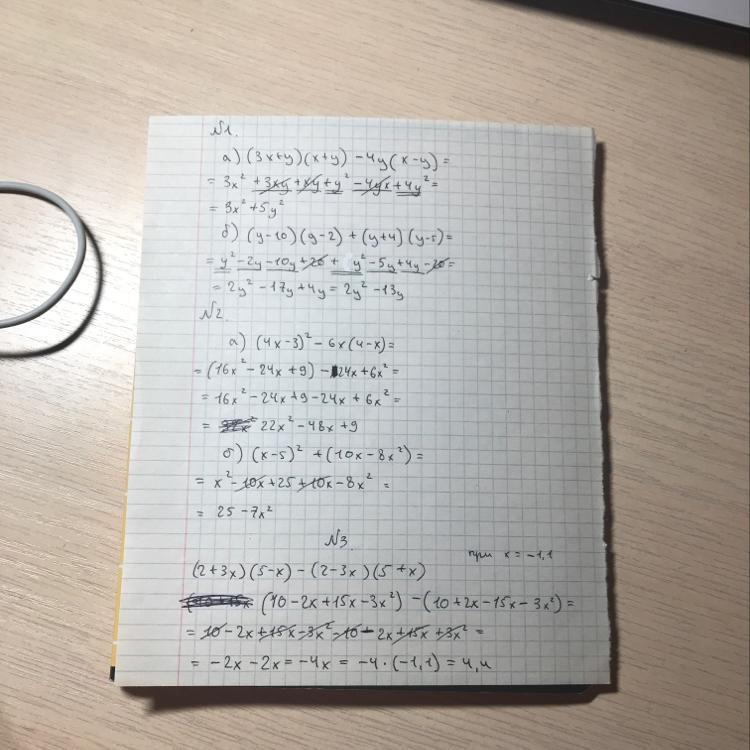 №1.
а) (3x+y)(x+y) - 4y(x-y) =
= 3x² + 3xy + xy + y² - 4yx + 4y² =
= 3x² + 5y²
б) (y-10)(y-2) + (y+4)(y-5) =
= y² - 2y - 10y + 20 + y² - 5y + 4y - 20 =
= 2y² - 17y + 4y = 2y² - 13y
№2.
а) (4x-3)² - 6x(4-x) =
= (16x² - 24x + 9) - 24x + 6x² =
= 16x² - 24x + 9 - 24x + 6x² =
= 22x² - 48x + 9
б) (x-5)² + (10x - 8x²) =
= x² - 10x + 25 + 10x - 8x² =
= 25 - 7x²
№3.
при x = -1,1
(2+3x)(5-x) - (2-3x)(5+x)
(10 - 2x + 15x - 3x²) - (10 + 2x - 15x - 3x²) =
= 10 - 2x + 15x - 3x² - 10 - 2x + 15x + 3x² =
= -2x - 2x = -4x = -4 · (-1,1) = 4,4